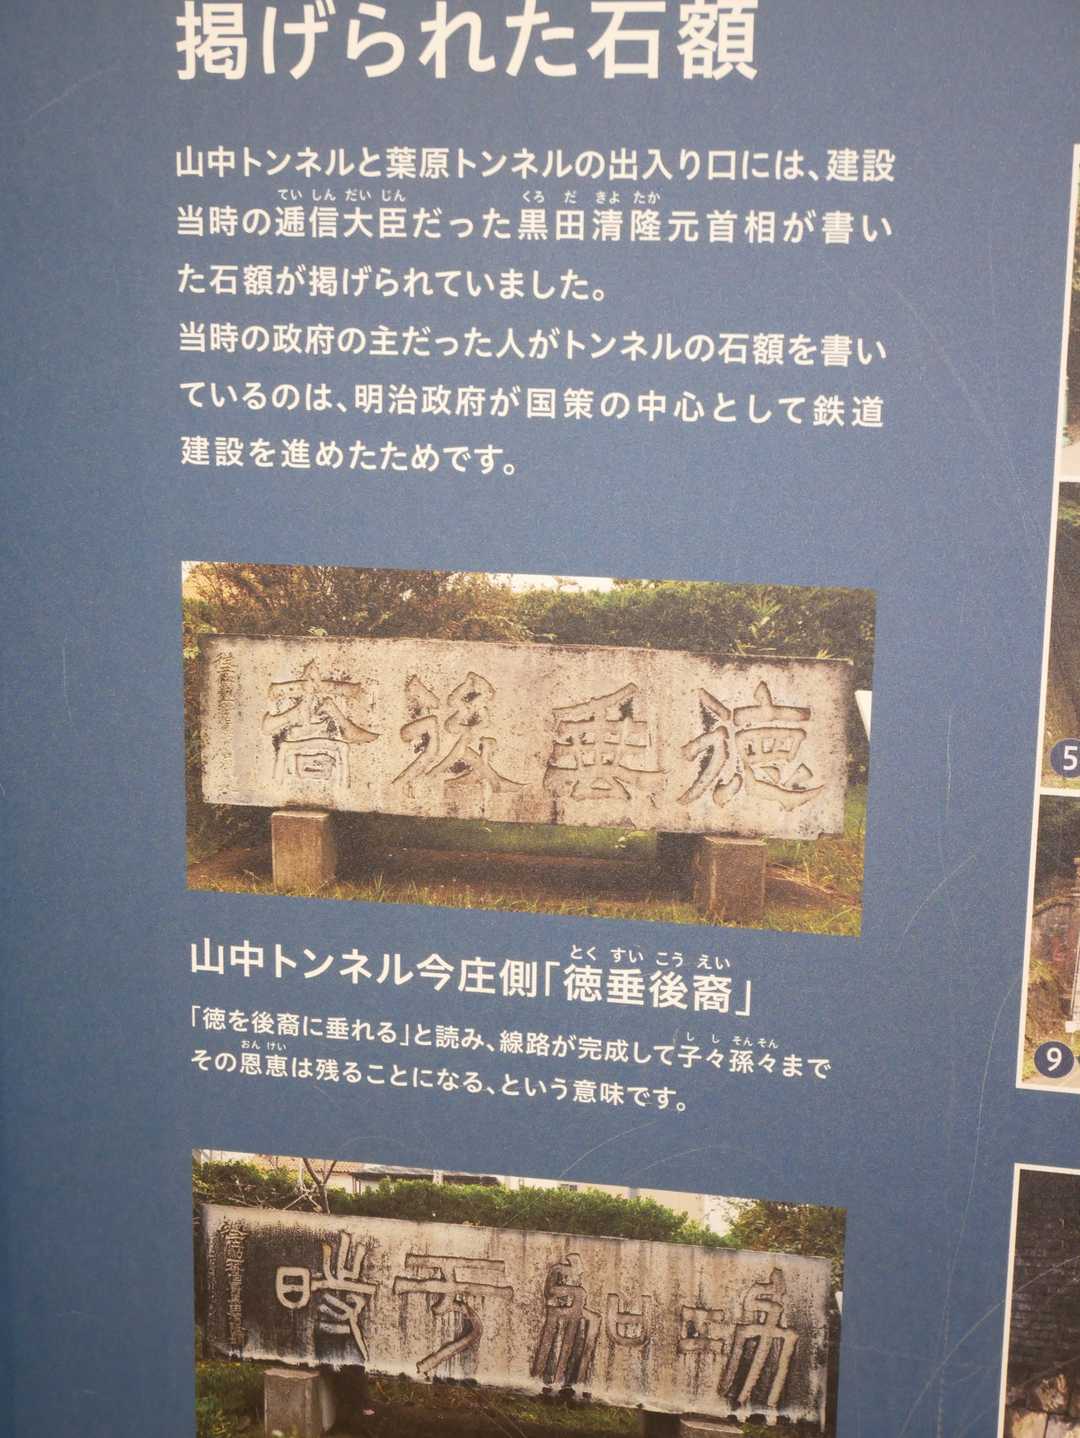 掲げられた石額
山中トンネルと葉原トンネルの出入り口には、建設
てい しん だい じん
くろ だ きよ たか
当時の逓信大臣だった黒田清隆元首相が書い
た石額が掲げられていました。
当時の政府の主だった人がトンネルの石額を書い
ているのは、明治政府が国策の中心として鉄道
建設を進めたためです。
裔後垂徳
とく すい こう えい
山中トンネル今庄側「徳垂後裔」
「徳を後裔に垂れる」と読み、線路が完成して子々孫々まで
し し そん そん
おん けい
その恩恵は残ることになる、という意味です。
5
9